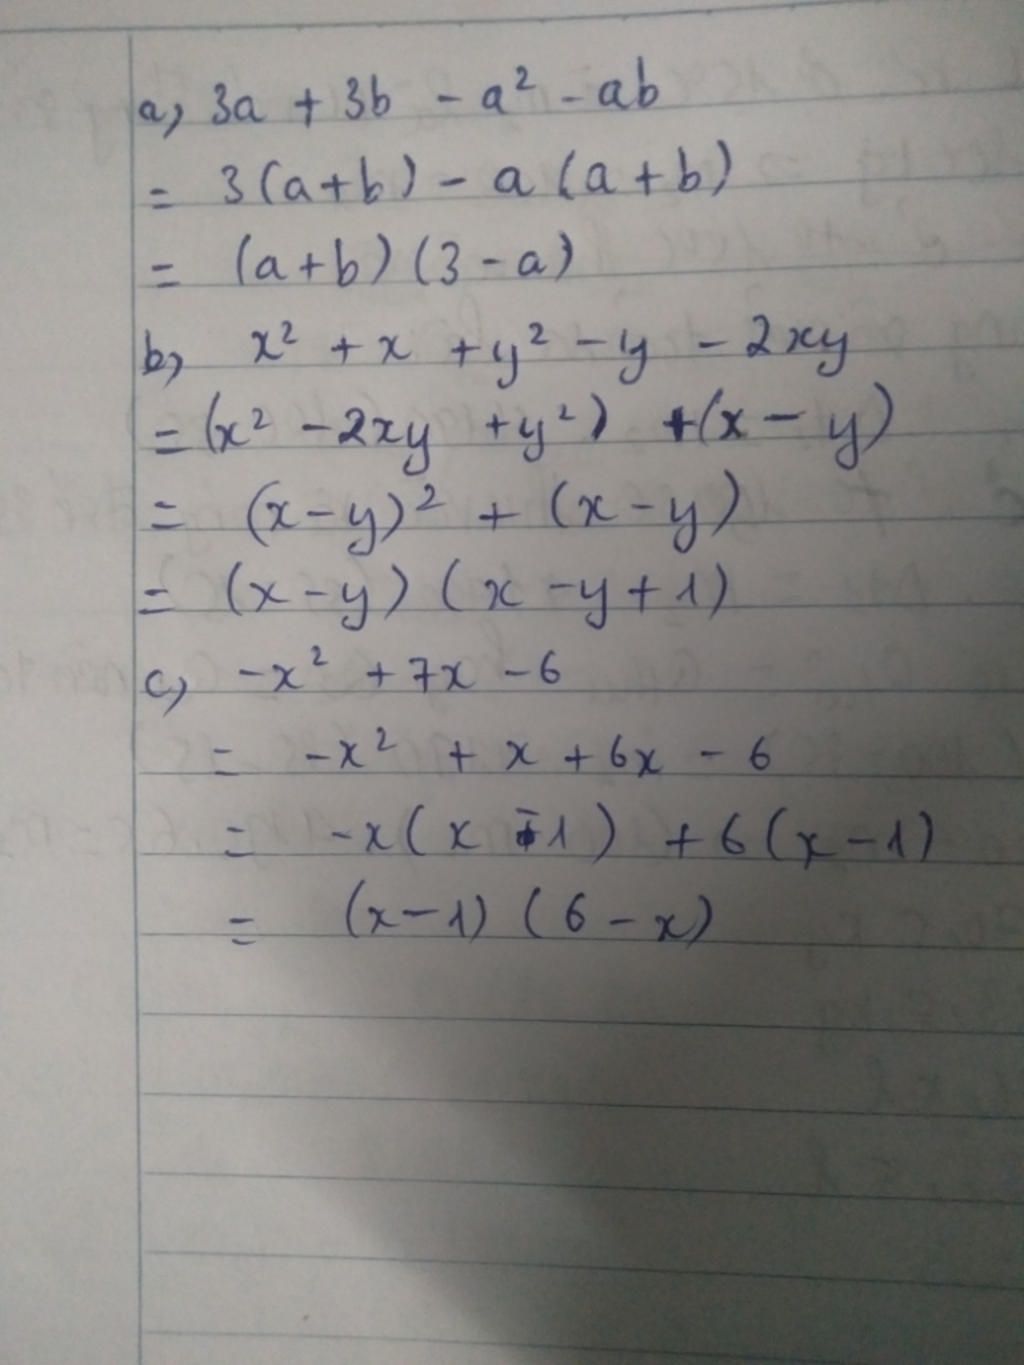 a, 3a + 3b - a² - ab
= 3(a+b) - a(a+b)
= (a+b)(3-a)
b, x² + x + y² - y - 2xy
= (x² - 2xy + y²) + (x - y)
= (x-y)² + (x-y)
= (x-y)(x-y+1)
c, -x² + 7x - 6
= -x² + x + 6x - 6
= -x(x-1) + 6(x-1)
= (x-1)(6-x)